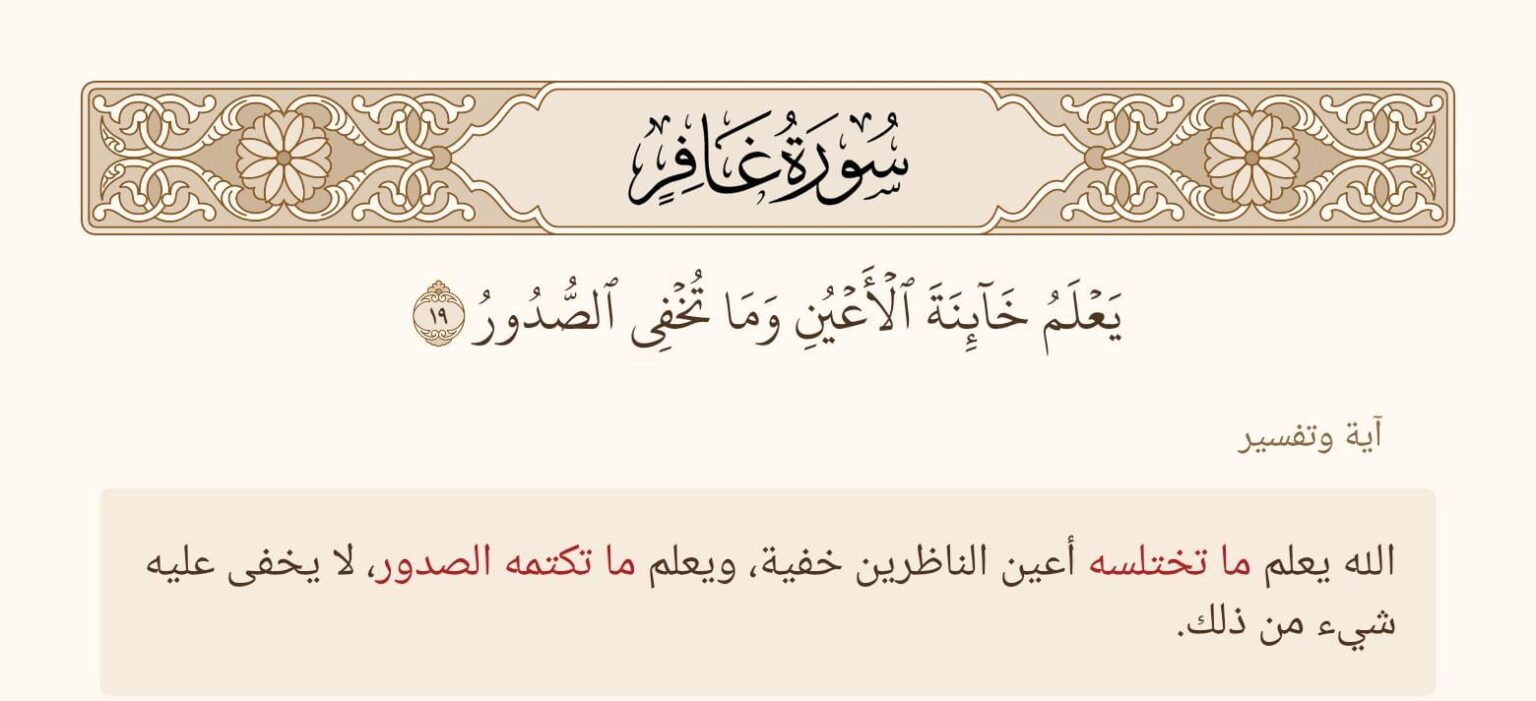 سُورَةُ غَافِرٍ
يَعْلَمُ خَآئِنَةَ ٱلْأَعْيُنِ وَمَا تُخْفِى ٱلصُّدُورُ ١٩
آية وتفسير
الله يعلم ما تختلسه أعين الناظرين خفية، ويعلم ما تكتمه الصدور، لا يخفى عليه
شيء من ذلك.